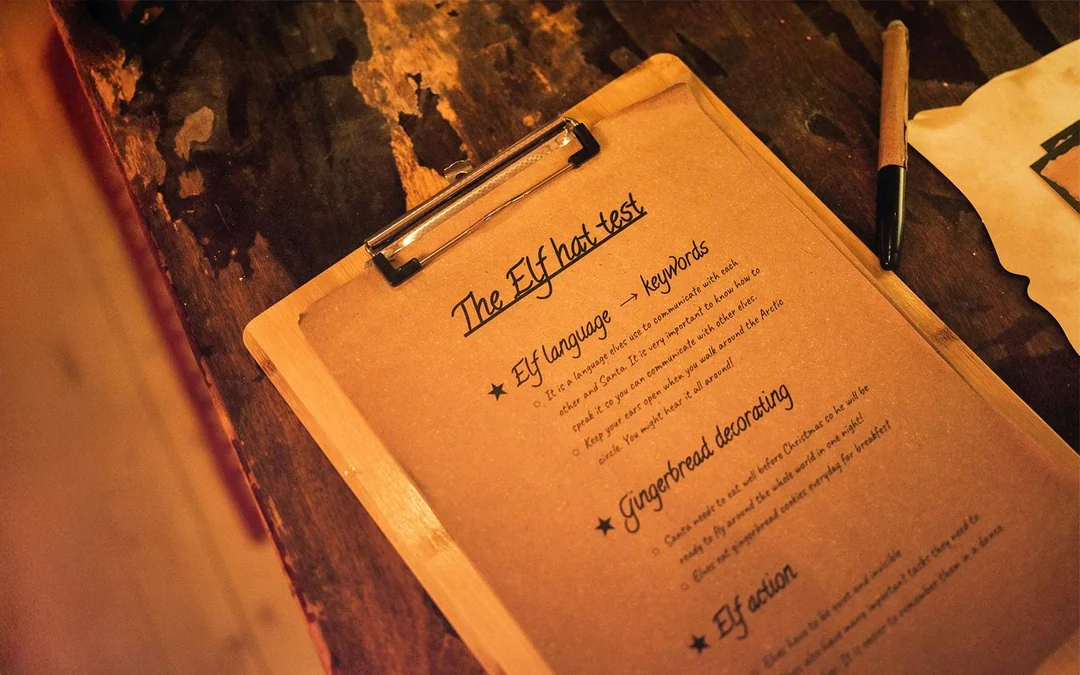 The Elf hat test
★ Elf language → keywords
○ It is a language elves use to communicate with each
other and Santa. It is very important to know how to
speak it so you can communicate with other elves.
○ Keep your ears open when you walk around the Arctic
circle. You might hear it all around!
★ Gingerbread decorating
○ Santa needs to eat well before Christmas so he will be
ready to fly around the whole world in one night!
○ Elves eat gingerbread cookies everyday for breakfast
★ Elf action
Elves have to be quiet and invisible
also have many important tasks they need to
It is easier to remember them in a dance.